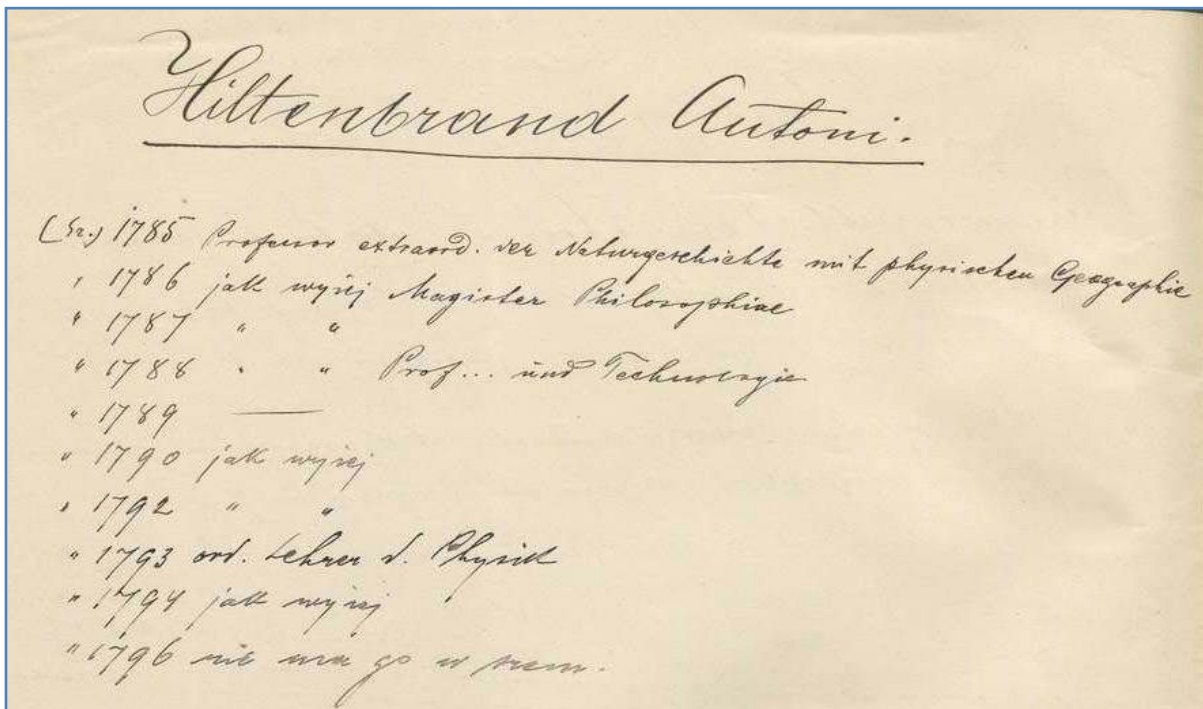 Hiltenbrand Antoni.
(Sz.) 1785 Professor extraord. der Naturgeschichte mit physischen Geographie
" 1786 jak wyżej Magister Philosophiae
" 1787 " "
" 1788 " " Prof... und Technologie
" 1789 —
" 1790 jak wyżej
" 1792 " "
" 1793 ord. Lehrer d. Physik
" 1794 jak wyżej
" 1796 nie ma go w